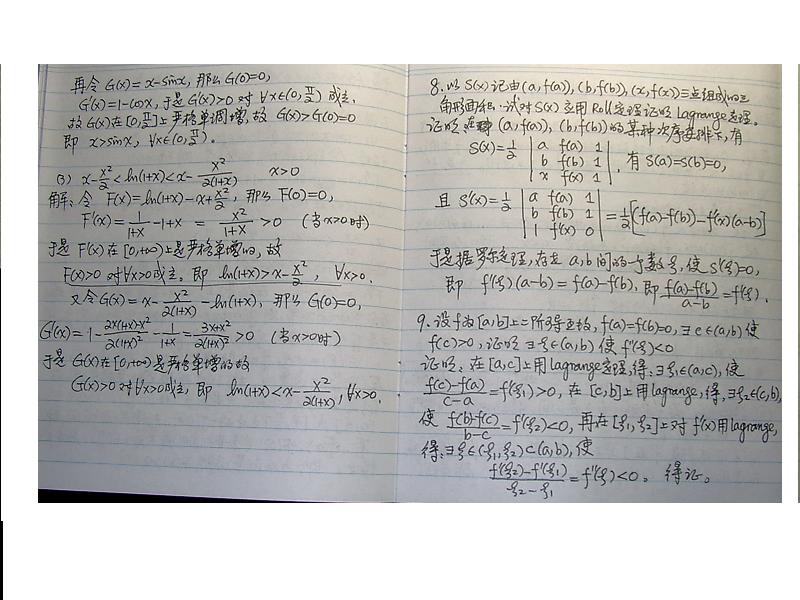 再令 G(x) = x-sinx, 那么 G(0)=0,
G'(x)=1-cosx, 于是 G'(x)>0 对 ∀x∈(0, π/2) 成立.
故 G(x) 在 [0, π/2] 上严格单调增, 故 G(x)>G(0)=0
即 x>sinx, ∀x∈(0, π/2).
(3) x-x²/2<ln(1+x)<x-x²/2(1+x) x>0
解: 令 F(x)=ln(1+x)-x+x²/2, 那么 F(0)=0,
F'(x)=1/(1+x)-1+x = x²/(1+x) >0 (当x>0时)
于是 F(x) 在 [0,+∞) 上是严格单增的, 故
F(x)>0 对∀x>0成立. 即 ln(1+x)>x-x²/2, ∀x>0.
又令G(x)= x-x²/2(1+x)-ln(1+x), 那么 G(0)=0,
G'(x)=1-(2x(1+x)-x²)/2(1+x)²-1/(1+x)=(3x+x²)/2(1+x)²>0 (当x>0时)
于是 G(x)在[0,+∞)是严格单增的故
G(x)>0 对∀x>0成立, 即 ln(1+x)<x-x²/2(1+x), ∀x>0.
8. 以 S(x) 记由 (a, f(a)), (b, f(b)), (x, f(x)) 三点组成的三
角形面积. 试对 S(x) 应用 Roll 定理证明 Lagrange 定理.
证明: 在 (a, f(a)), (b, f(b)) 的某种次序安排下, 有
S(x)=1/2 | a f(a) 1 |
| b f(b) 1 | , 有 S(a)=S(b)=0,
| x f(x) 1 |
且 S'(x)=1/2 | a f(a) 1 |
| b f(b) 1 | =1/2[(f(a)-f(b))-f'(x)(a-b)]
| 1 f'(x) 0 |
于是据罗尔定理, 存在 a,b 间的一个数 ξ, 使 S'(ξ)=0,
即 f'(ξ)(a-b)=f(a)-f(b), 即 (f(a)-f(b))/(a-b)=f'(ξ).
9. 设f为[a,b]上二阶可导函数, f(a)=f(b)=0, ∃c∈(a,b) 使
f(c)>0, 证明 ∃ξ∈(a,b) 使 f''(ξ)<0
证明: 在[a,c]上用lagrange定理, 得: ∃ξ₁∈(a,c), 使
(f(c)-f(a))/(c-a)=f'(ξ₁)>0, 在[c,b]上用lagrange, 得, ∃ξ₂∈(c,b),
使 (f(b)-f(c))/(b-c)=f'(ξ₂)<0, 再在[ξ₁,ξ₂]上对 f'(x)用lagrange,
得: ∃ξ∈(ξ₁,ξ₂)⊂(a,b), 使
(f'(ξ₂)-f'(ξ₁))/(ξ₂-ξ₁)=f''(ξ)<0。 得证。